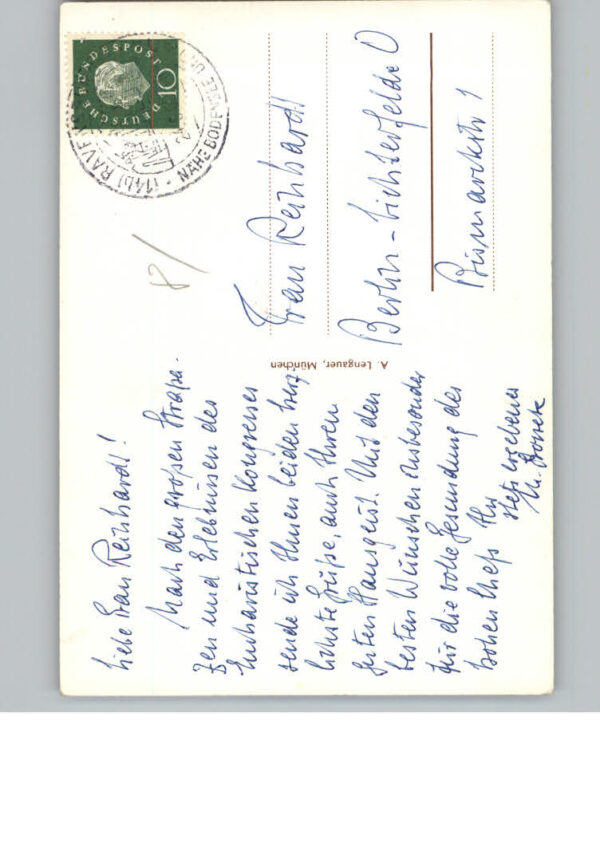 Liebe Frau Reinhardt!
Nach den großen Straßen
und Erlebnissen des
Eucharistischen Kongresses
sende ich Ihnen beiden herz-
lichste Grüße, auch Ihrem
Hausgeist. Mit den
besten Wünschen insbesonder
für die volle Gesundung des
hohen Chefs Ihr
stets ergebener
A. Lengauer, München
Frau Reinhardt
Berlin-Lichterfelde O
Bismarckstr 1
8/
DEUTSCHE BUNDESPOST
10
(14b) RAVE
NÄHE BODENSEE U